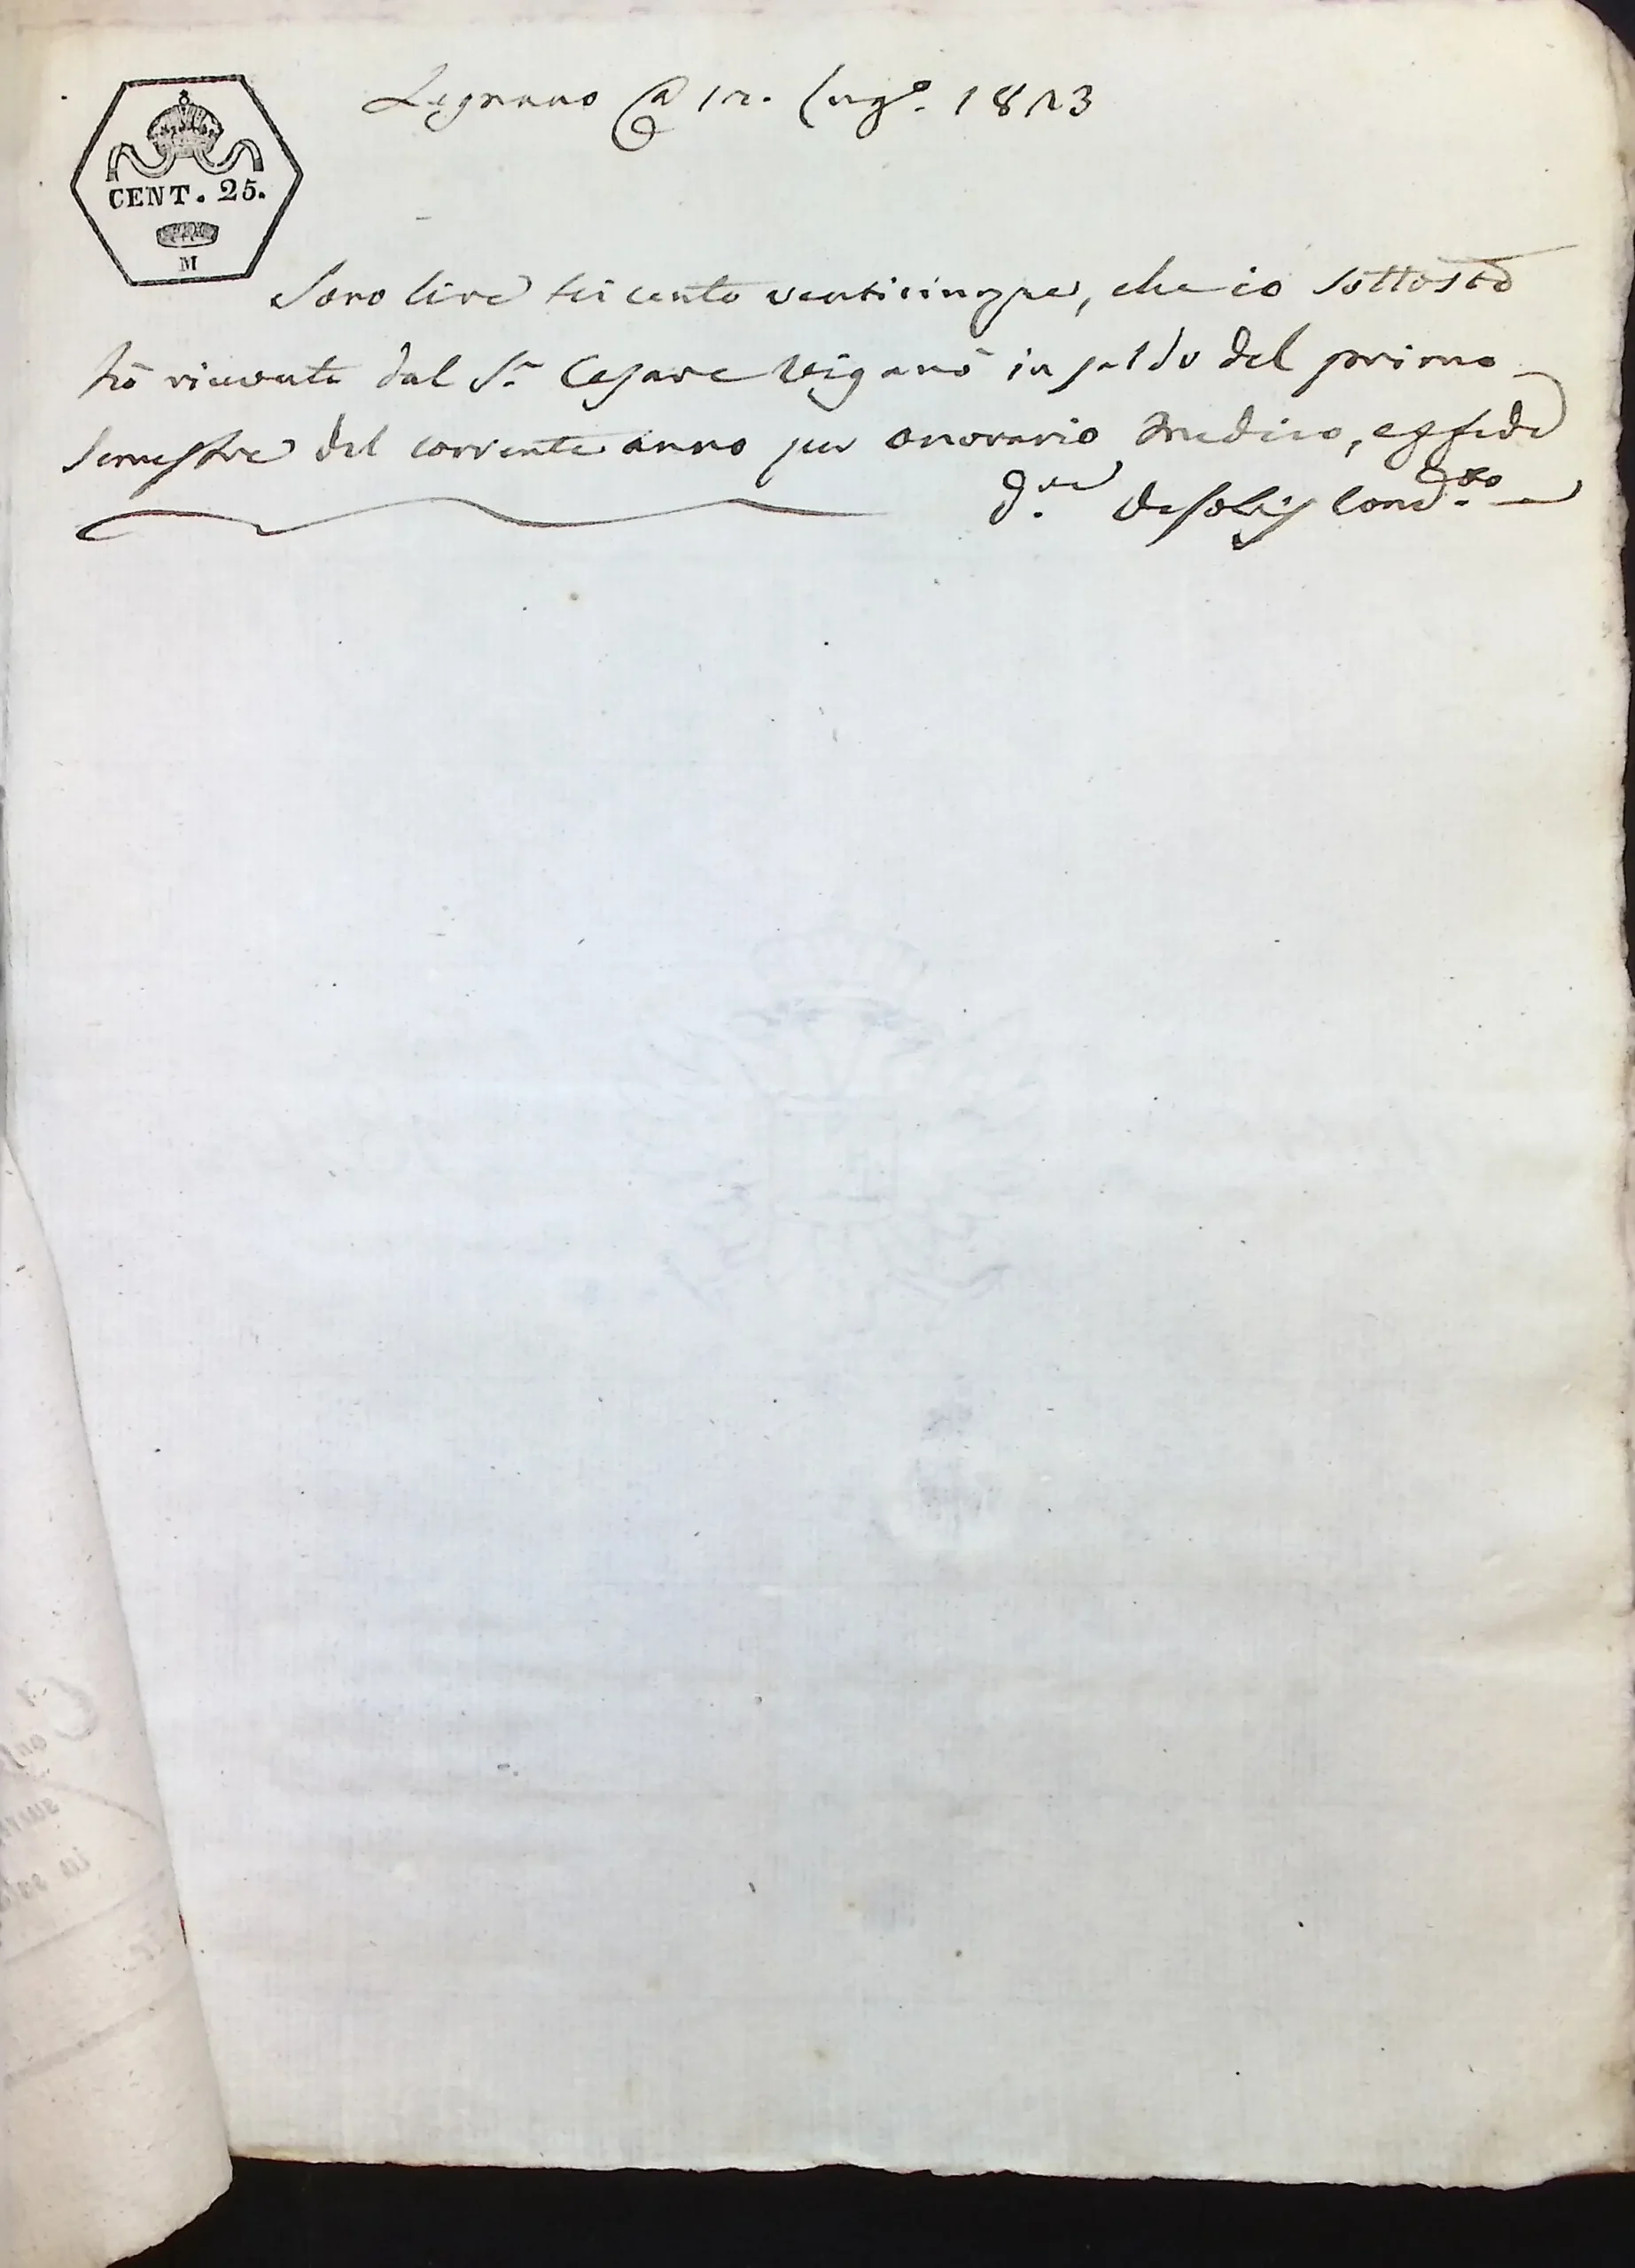 Legnano @ 12. lug.o 1823
CENT. 25.
M
Sono lire seicento venticinque, che io sottosto
hò ricevute dal S.r Cesare Viganò in saldo del primo
Semestre del corrente anno per onorario Medico, e p fede
D.re Desolis Cond.to